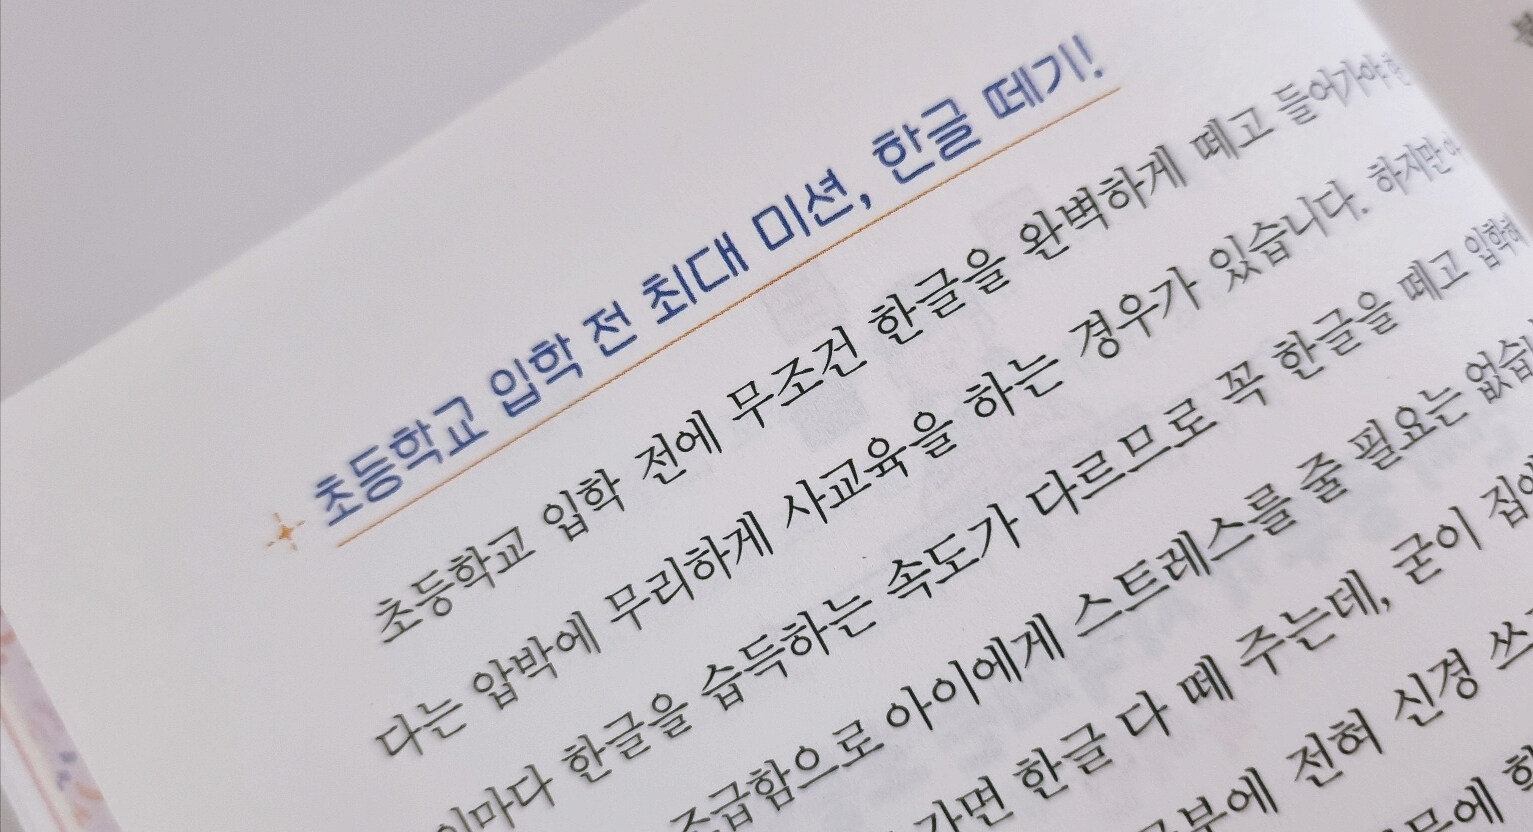 초등학교 입학 전 최대 미션, 한글 떼기!
초등학교 입학 전에 무조건 한글을 완벽하게 떼고 들어가야
다는 압박에 무리하게 사교육을 하는 경우가 있습니다. 하지만
이마다 한글을 습득하는 속도가 다르므로 꼭 한글을 떼고 입학해
조급함으로 아이에게 스트레스를 줄 필요는 없습
가면 한글 다 떼 주는데, 굳이 집에
전혀 신경 쓰